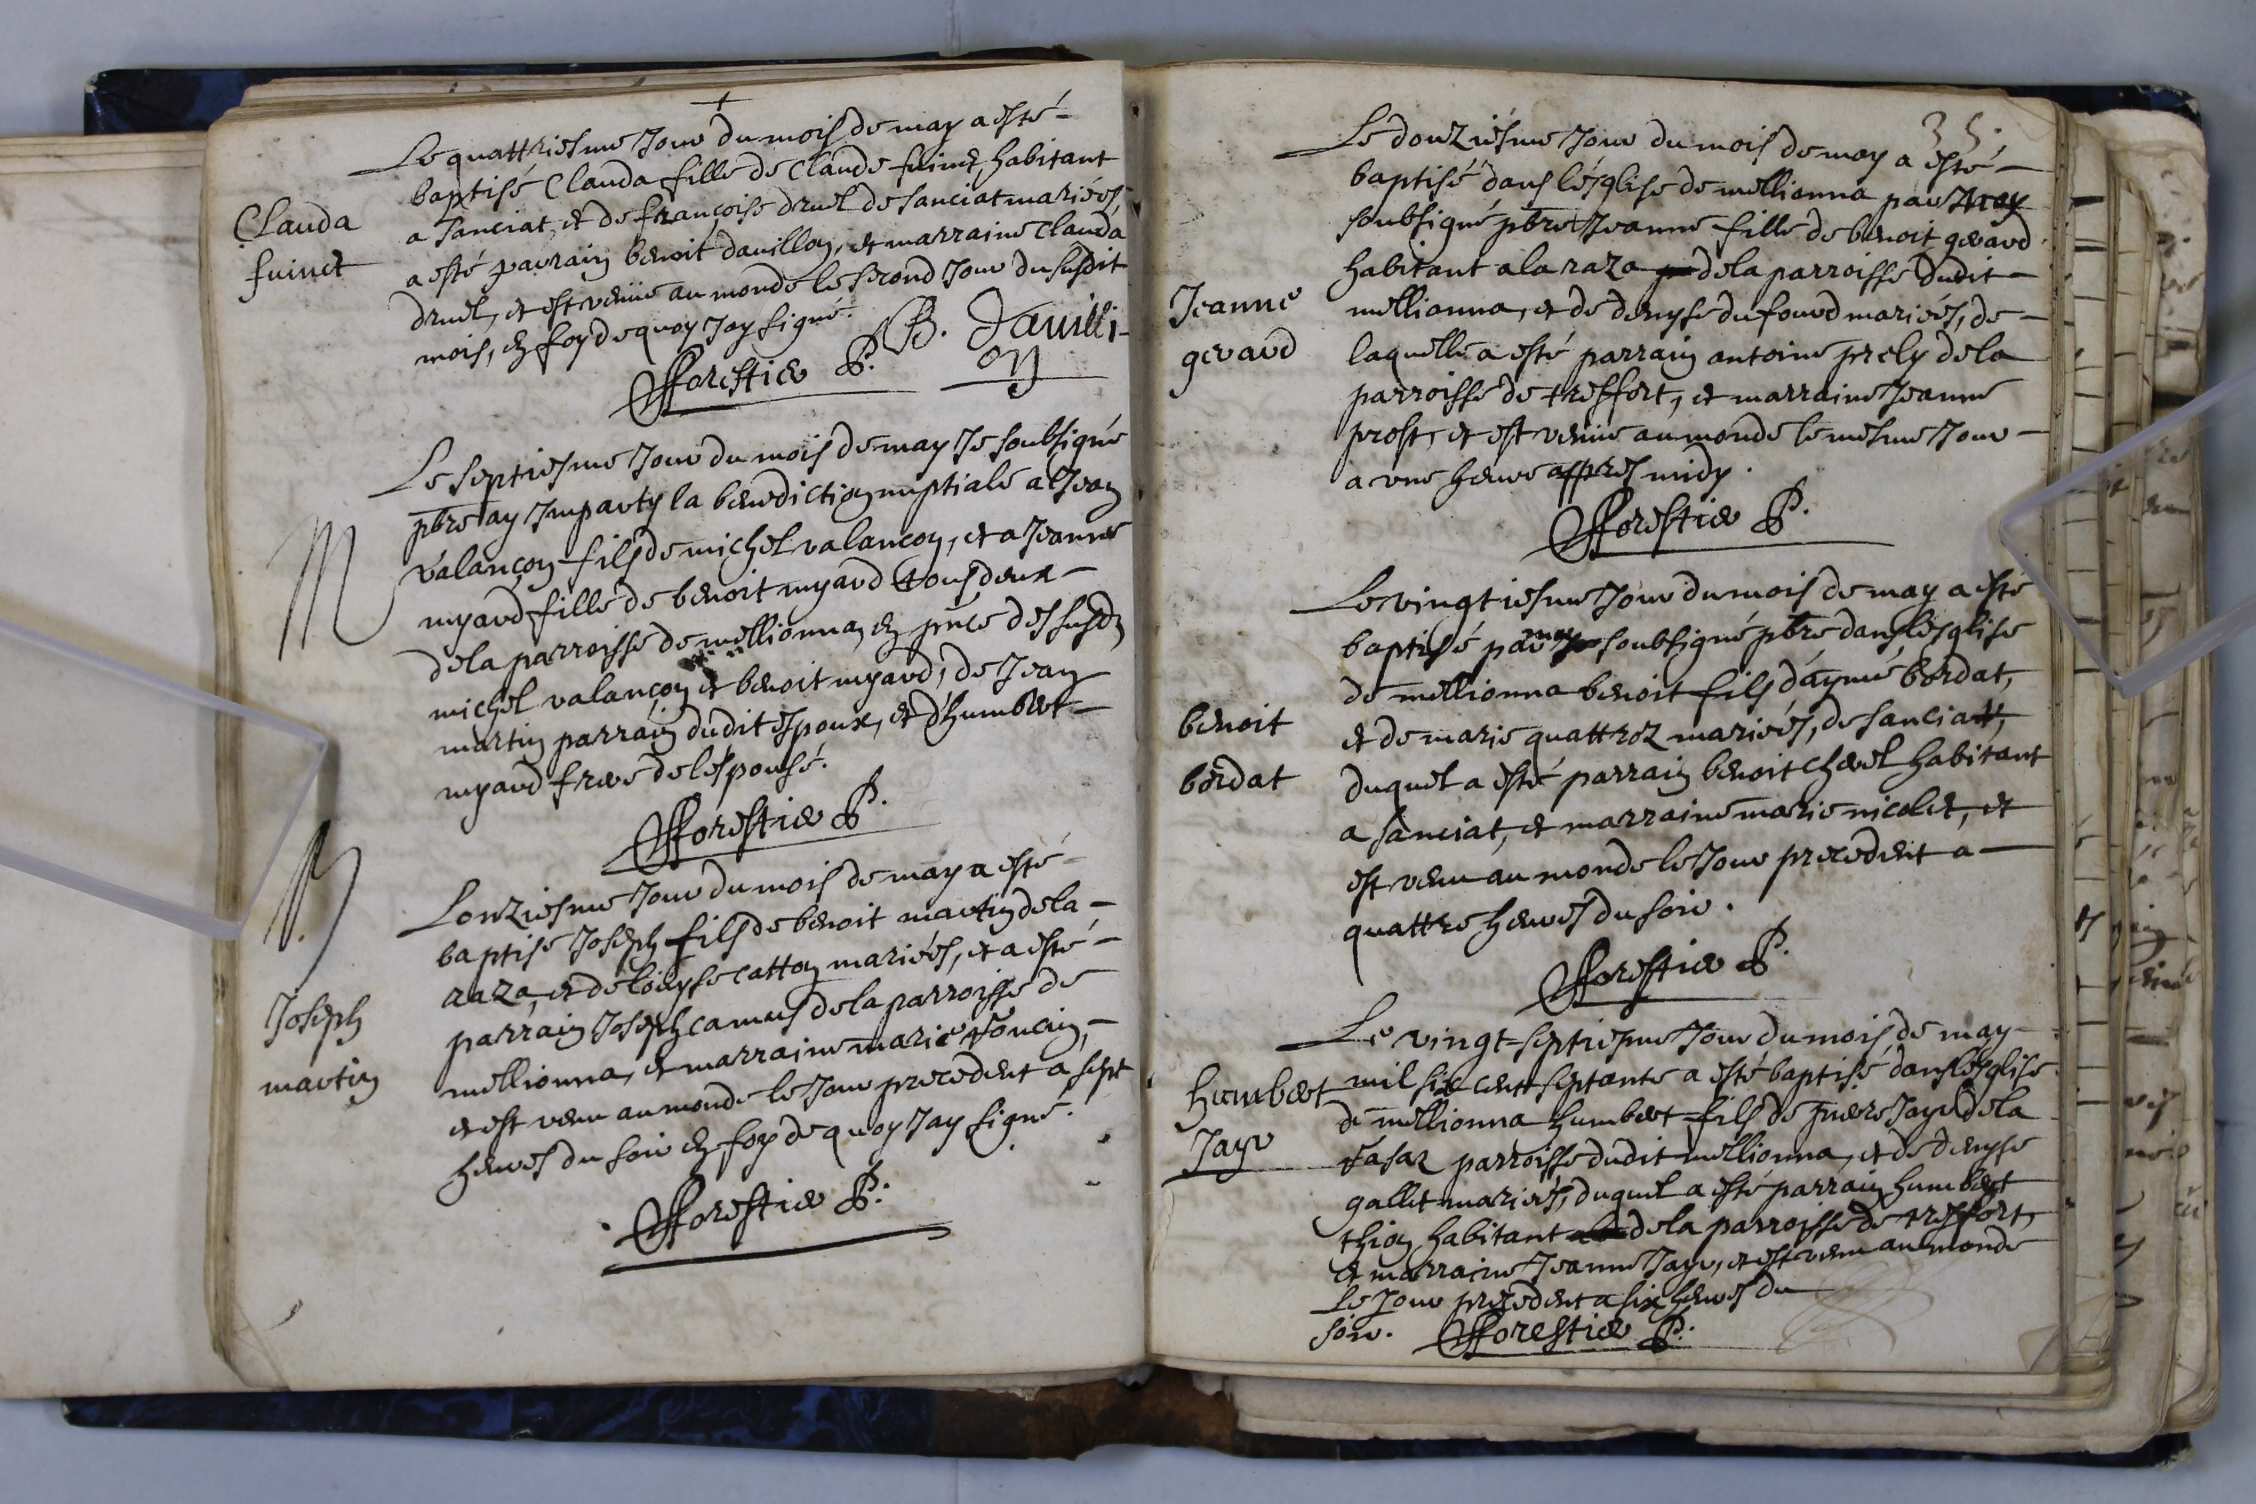 Le quattriesme Jour du mois de may a esté
baptisé Clauda fille de Claude fuinet habitant
a sanciat, et de françoise druel de sanciat mariées,
a esté parrain benoit dauillon, et marraine Clauda
druel, et est venüe au monde le second Jour du susdit
mois, en foy de quoy Jay signé.
Clauda
fuinet
fforestier P.
B. Dauilli-
on
Le septiesme Jour du mois de may Je soubsigné
pbre ay Imparty la benediction nuptiale a Jean
valançon fils de michel valançon, et a Jeanne
myard fille de benoit myard tous deux
de la parroisse de mellionna, en pnce des susdz
michel valançon et benoit myard, de Jean
martin parrain dudit espoux, et d'humbert
myard frere de lespousé.
M
fforestier P.
Lonziesme Jour du mois de may a esté
baptise Joseph fils de benoit martin de la
raza, et de loüyse catton mariées, et a esté
parrain Joseph camus de la parroisse de
mellionna, et marraine marie poncin,
et est venu au monde le Jour precedent a sept
heures du soir en foy de quoy Jay signé.
Joseph
martin
fforestier P.
35.
Le douziésme Jour du mois de may a esté
baptisé dans lésglise de mellionna par moy
soubsigné pbre Jeanne fille de benoit gerard
habitant a la raza de la parroisse dudit
mellionna, et de denyse du fourd mariées, de
laquelle a esté parrain antoine prely de la
parroisse de treffort, et marraine Jeanne
prost, et est venüe au monde le mesme Jour
a une heure appres midy.
Jeanne
gerard
fforestier P.
Le vingtiesme Jour du mois de may a esté
baptisé par moy soubsigné pbre dans lésglise
de mellionna benoit fils d'aymé bordat,
et de marie quattroz mariées, de sanciat,
duquel a esté parrain benoit chevel habitant
a sanciat, et marraine marie nicolet, et
est venu au monde le Jour precedent a
quattre heures du soir.
benoit
bordat
fforestier P.
Le vingt-septiesme Jour du mois de may
mil six cent septante a esté baptisé dans lésglise
de mellionna humbert fils de pierre Jayr de la
Casaz parroisse dudit mellionna, et de denyse
gallet mariées, duquel a esté parrain humbert
thion habitant de la parroisse de treffort,
et marraine Jeanne Jayr, et est venu au monde
le Jour precedent a six heures du
soir.
humbert
Jayr
fforestier P.